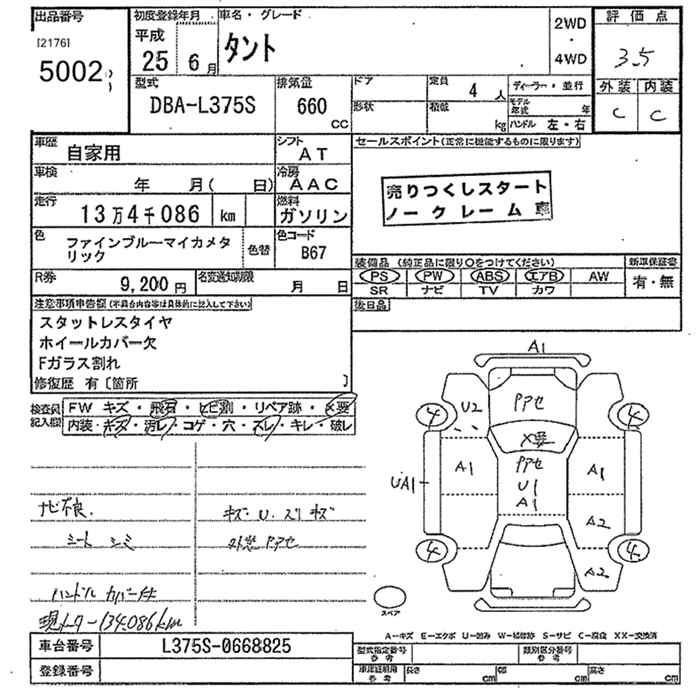 出品番号 初度登録年月 車名・グレード 評価点
[2176] 平成 2WD
5002 25年 6月 タント ・ 3.5
4WD
型式 排気量 ドア 定員 4人 ディーラー・並行 外装 内装
DBA-L375S 660 CC 形状 積載 kg モデル年式 年 C C
ハンドル 左・右
車歴 自家用 シフト AT セールスポイント(正常に機能するものに限ります)
車検 年 月( 日) 冷房 AAC
売りつくしスタート
ノークレーム
走行 13万4千086 km 燃料 ガソリン
色 ファインブルーマイカメタリック 色替 色コード B67
装備品 (純正品に限り○をつけてください) 新車保証書
PS PW ABS エアB AW 有・無
SR ナビ TV カワ
R券 9,200円 名変通知期限 月 日
後日品
注意事項申告欄(不具合内容等は具体的に記入して下さい)
スタットレスタイヤ
ホイールカバー欠
Fガラス割れ
修復歴 有〔箇所 〕
検査員記入欄 FW キズ・飛石・ヒビ割・リペア跡・X要
内装・キズ・汚レ・コゲ・穴・スレ・キレ・破レ
A1
4 U2 アアセ 4
X要
A1 アアセ A1
UA1 U1
A1
A2
4 4
A2
スペア
ナビ不良. キズ U. スリキズ
シート シミ 外装 アアセ
ハンドル カバー付
現メーター134.086km
A-キズ E-エクボ U-凹み W-補修跡 S-サビ C-腐食 XX-交換済
車台番号 L375S-0668825
型式指定番号 参考 類別区分番号 参考
登録番号
車庫証明用 参考 長さ cm 幅 cm 高さ cm